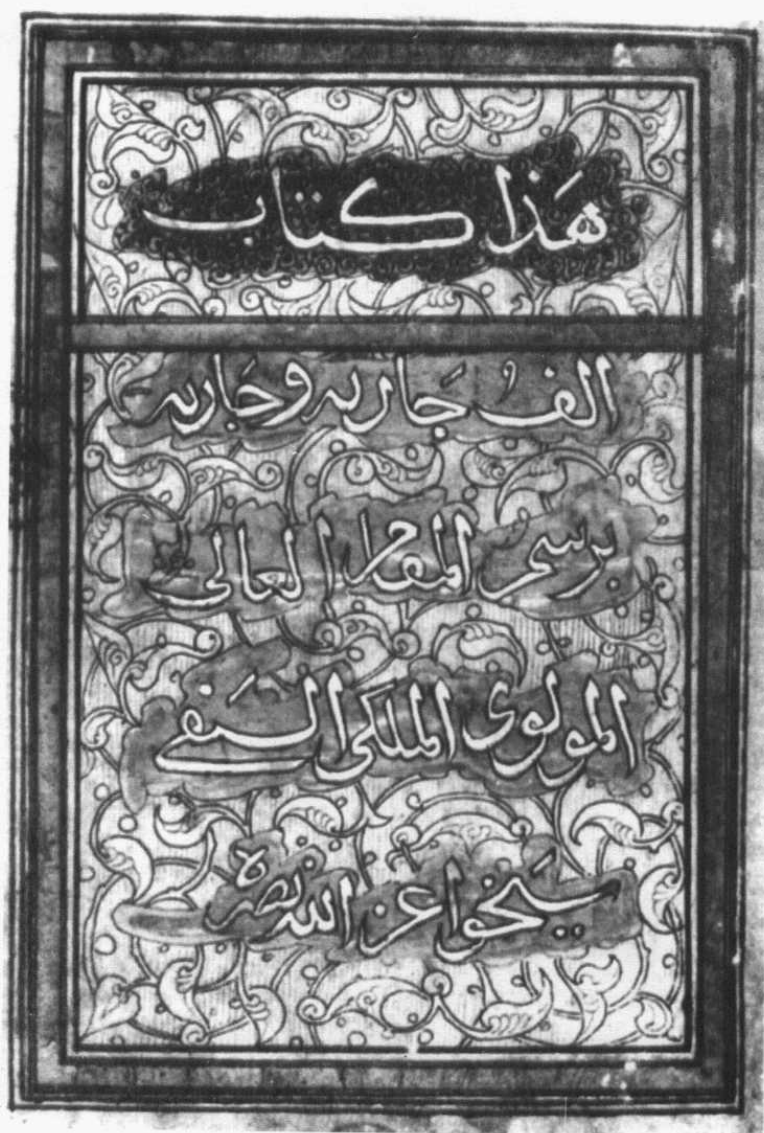 هَذا كتاب
الف جَاريه وجَاريه
برسم المقر العالى
المولوى الملكى السَيفي
يشَبخوا عز الله نصره